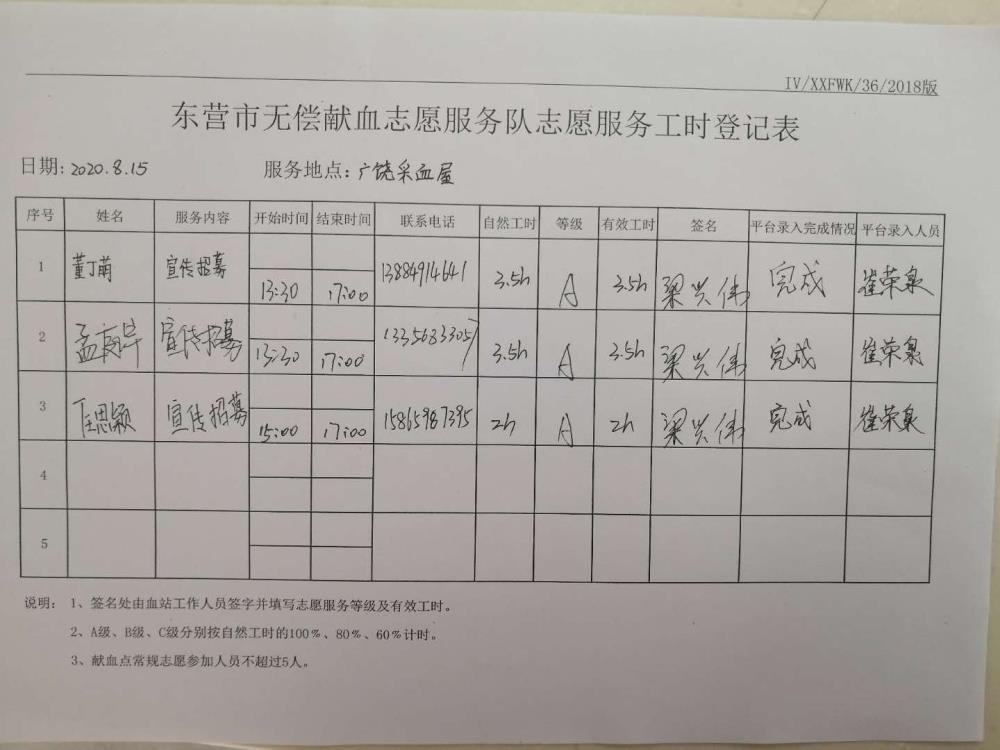 IV/XXFWK/36/2018版
东营市无偿献血志愿服务队志愿服务工时登记表
日期: 2020.8.15 服务地点: 广饶采血屋
序号 姓名 服务内容 开始时间 结束时间 联系电话 自然工时 等级 有效工时 签名 平台录入完成情况 平台录入人员
1 董丁萌 宣传招募 13:30 17:00 13884914641 3.5h A 3.5h 梁兴伟 完成 崔荣泉
2 孟 宣传招募 13:30 17:00 13356833057 3.5h A 3.5h 梁兴伟 完成 崔荣泉
3 任思颖 宣传招募 15:00 17:00 15865987395 2h A 2h 梁兴伟 完成 崔荣泉
4
5
说明: 1、签名处由血站工作人员签字并填写志愿服务等级及有效工时。
2、A级、B级、C级分别按自然工时的100%、80%、60%计时。
3、献血点常规志愿参加人员不超过5人。